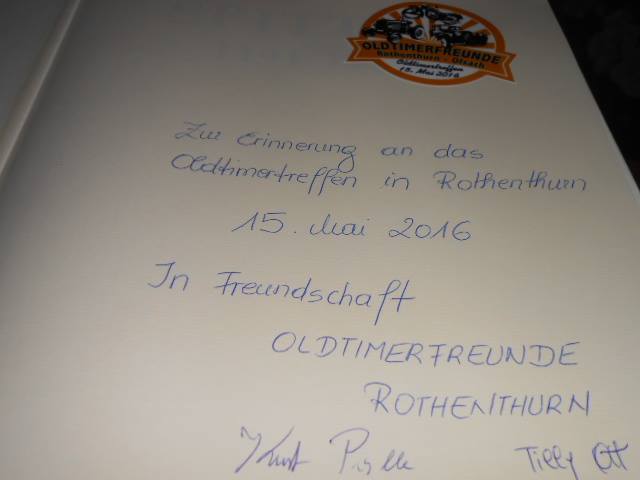 OLDTIMERFREUNDE
Rothenthurn - Olsach
Oldtimertreffen
15. Mai 2016
Zur Erinnerung an das
Oldtimertreffen in Rothenthurn
15. Mai 2016
In Freundschaft
OLDTIMERFREUNDE
ROTHENTHURN
Kurt
Tilly Ott